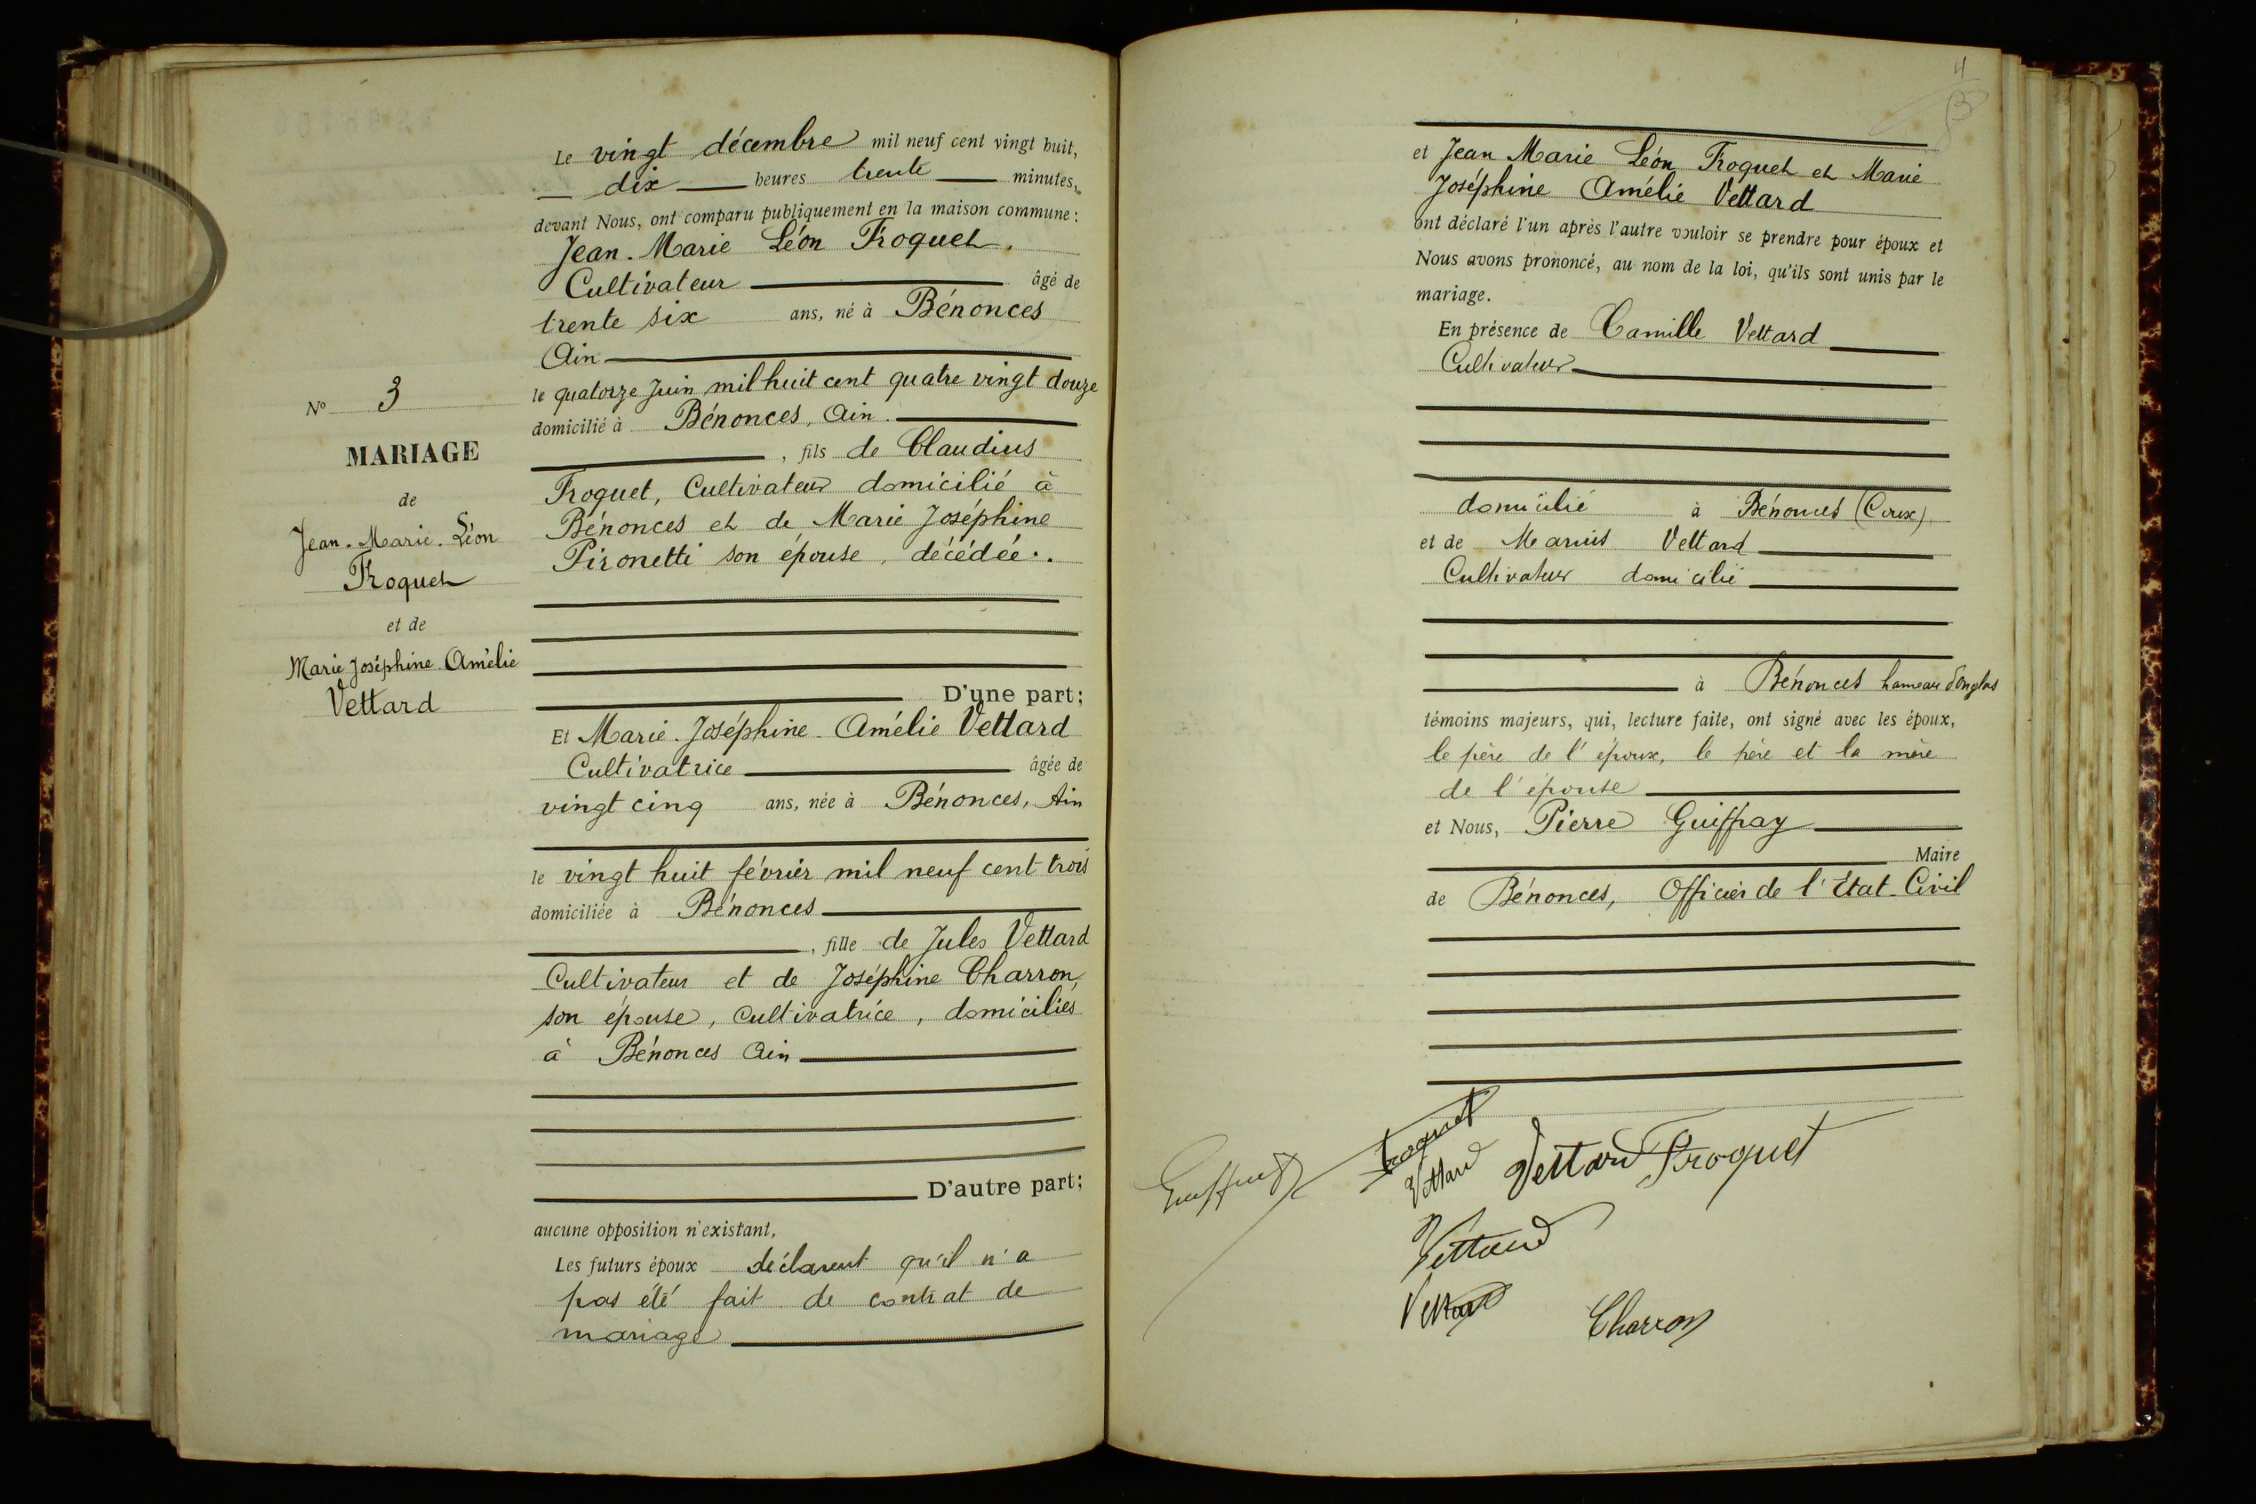 Le vingt décembre mil neuf cent vingt huit,
dix heures trente minutes,
devant Nous, ont comparu publiquement en la maison commune :
Jean-Marie Léon Froquet.
Cultivateur âgé de
trente six ans, né à Bénonces
Ain
le quatorze Juin mil huit cent quatre vingt douze
domicilié à Bénonces, Ain.
, fils de Claudius
Froquet, Cultivateur domicilié à
Bénonces et de Marie Joséphine
Pironetti son épouse, décédée.
D'une part;
Et Marie-Joséphine-Amélie Vettard
Cultivatrice âgée de
vingt cinq ans, née à Bénonces, Ain
le vingt huit février mil neuf cent trois
domiciliée à Bénonces
, fille de Jules Vettard
Cultivateur et de Joséphine Charron,
son épouse, cultivatrice, domiciliés
à Bénonces Ain
D'autre part;
aucune opposition n'existant,
Les futurs époux déclarent qu'il n'a
pas été fait de contrat de
mariage
No 3
MARIAGE
de
Jean-Marie-Léon
Froquet
et de
Marie Joséphine Amélie
Vettard
4
et Jean Marie Léon Froquet et Marie
Joséphine Amélie Vettard
ont déclaré l'un après l'autre vouloir se prendre pour époux et
Nous avons prononcé, au nom de la loi, qu'ils sont unis par le
mariage.
En présence de Camille Vettard
Cultivateur
domicilié à Bénonces (Cirix)
et de Marius Vettard
Cultivateur domicilié
à Bénonces hameau d'onglas
témoins majeurs, qui, lecture faite, ont signé avec les époux,
le père de l'époux, le père et la mère
de l'épouse
et Nous, Pierre Guiffray
Maire
de Bénonces, Officier de l'État-Civil
Froquet
Vettard
Vettard Froquet
Vettard
Vettard
Charron